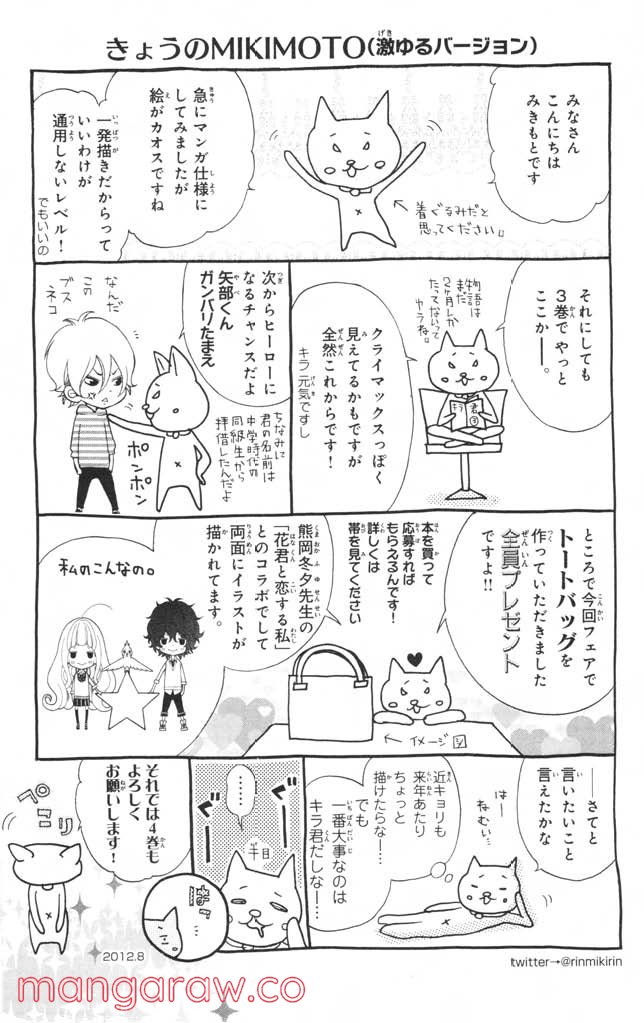 きょうのMIKIMOTO(激ゆるバージョン)
みなさん
こんにちは
みきもとです
着ぐるみだと
思ってください。
急にマンガ仕様に
してみましたが
絵がカオスですね
一発描きだからって
いいわけが
通用しないレベル!
でもいいの
それにしても
3巻でやっと
ここか──。
物語は
まだ
2ヶ月しか
たってないって
ヤラね。
クライマックスっぽく
見えてるかもですが
全然これからです!
キラ元気ですし
君③
次からヒーローに
なるチャンスだよ
矢部くん
ガンバリたまえ
ちなみに
君の名前は
中学時代の
同級生から
拝借したんだよ
ポンポン
なんだ
この
ブス
ネコ
ところで今回フェアで
トートバッグを
作っていただきました
全員プレゼント
ですよ!!
本を買って
応募すれば
もらえるんです!
詳しくは
帯を見てください
イメージ図
熊岡冬夕先生の
「花君と恋する私」
とのコラボでして
両面にイラストが
描かれてます。
私のこんなの。
──さてと
言いたいこと
言えたかな
はー
ねむい…
近キョリも
来年あたり
ちょっと
描けたらな…
でも
一番大事なのは
キラ君だしな…
……
半目
はっ
それでは4巻も
よろしく
お願いします!
ペコリ
2012.8
twitter→@rinmikirin
mangaraw.co